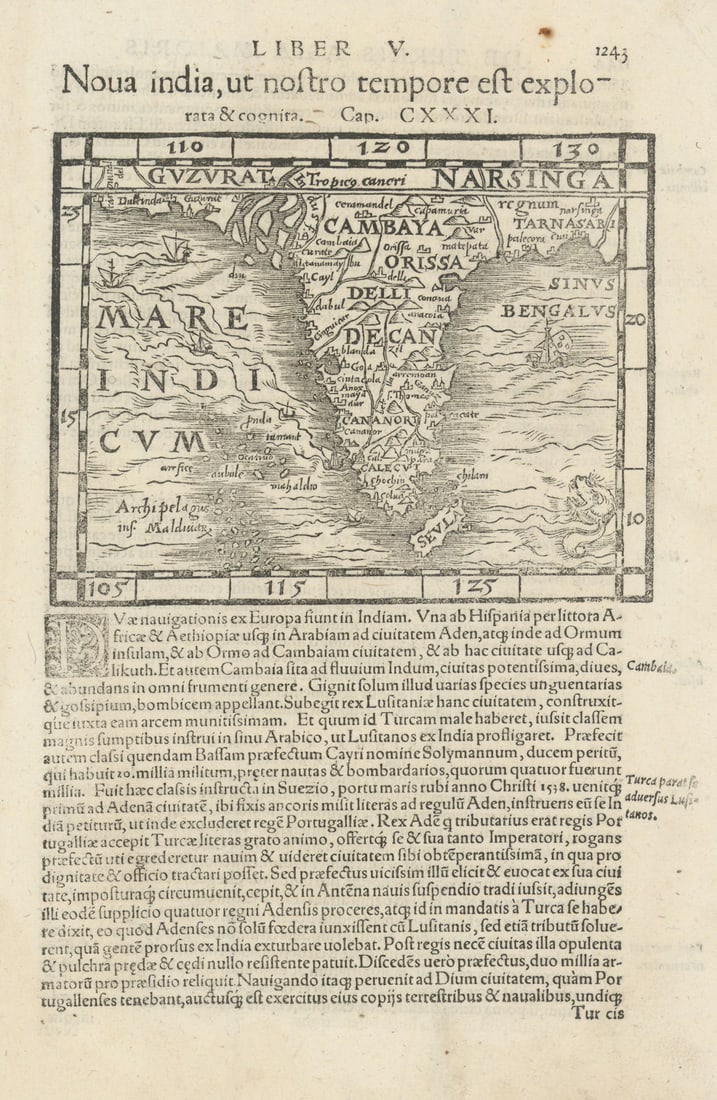 LIBER V.
1243
Noua india, ut nostro tempore est explo-
rata & cognita. Cap. CXXXI.
110 120 130
GUZURAT Tropico cancri NARSINGA
25
Dulcinda Guzurate ceramandel capamuria regnum narsinga
CAMBAYA var TARNASARI
cambaia orissa matepata palecora
ORISSA
diu Cayl delli
SINVS
DELLI
dabul
MARE BENGALVS 20
DECAN
INDI
Goa
S. Thomas
15
CANANORI
Cananor
CVM
CALECVT
mahaldio Chochin chilam
Archipelagus
ins. Maldiuar.
SEYLA
10
105 115 125
DVæ nauigationis ex Europa fiunt in Indiam. Vna ab Hispania per littora A-
fricæ & Aethiopiæ usq; in Arabiam ad ciuitatem Aden, atq; inde ad Ormum
insulam, & ab Ormo ad Cambaiam ciuitatem, & ab hac ciuitate usq; ad Ca-
likuth. Et autem Cambaia sita ad fluuium Indum, ciuitas potentissima, diues,
Cambaia.
& abundans in omni frumenti genere. Gignit solum illud uarias species unguentarias
& gossipium, bombicem appellant. Subegit rex Lusitaniæ hanc ciuitatem, construxit-
que iuxta eam arcem munitissimam. Et quum id Turcam male haberet, iussit classem
magnis sumptibus instrui in sinu Arabico, ut Lusitanos ex India profligaret. Præfecit
autem classi quendam Bassam præfectum Cayri nomine Solymannum, ducem peritũ,
qui habuit 20. millia militum, præter nautas & bombardarios, quorum quatuor fuerunt
millia. Fuit hæc classis instructa in Suezio, portu maris rubi anno Christi 1538. uenitq;
Turca parat se
primũ ad Adenã ciuitatẽ, ibi fixis ancoris misit literas ad regulũ Aden, instruens eũ se In
aduersus Lusi-
diã petiturũ, ut inde excluderet regẽ Portugalliæ. Rex Adẽ q tributarius erat regis Por
tanos.
tugalliæ accepit Turcæ literas grato animo, offertq; se & sua tanto Imperatori, rogans
præfectũ uti egrederetur nauim & uideret ciuitatem sibi obtẽperantissimã, in qua pro
dignitate & officio tractari posset. Sed præfectus uicissim illũ elicit & euocat ex sua ciui
tate, imposturaq; circumuenit, cepit, & in Antẽna nauis suspendio tradi iussit, adiungẽs
illi eodẽ supplicio quatuor regni Adensis proceres, atq; id in mandatis à Turca se habe
re dixit, eo quod Adenses nõ solũ fœdera iunxissent cũ Lusitanis, sed etiã tributũ solue-
rent, quã gentẽ prorsus ex India exturbare uolebat. Post regis necẽ ciuitas illa opulenta
& pulchra prędæ & cędi nullo resistente patuit. Discedẽs uerò præfectus, duo millia ar-
matorũ pro præsidio reliquit. Nauigando itaq; peruenit ad Dium ciuitatem, quàm Por
tugallenses tenebant, auctusq; est exercitus eius copijs terrestribus & naualibus, undiq;
Tur cis